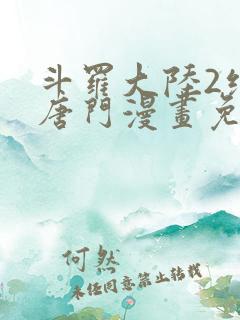 斗羅大陸2
唐門漫畫免
何然
未经同意禁止转载